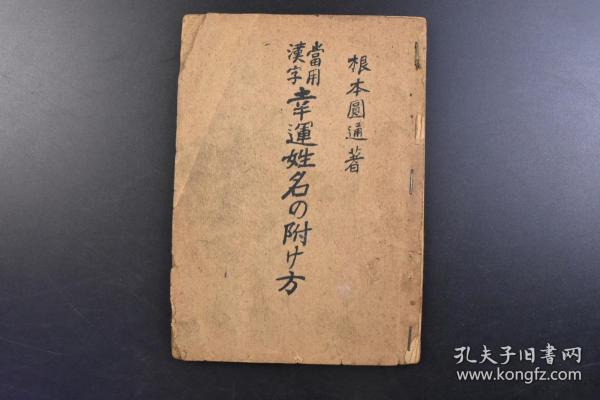 根本圓通著
當用
漢字
幸運姓名の附け方
孔夫子旧书网
www.kongfz.com